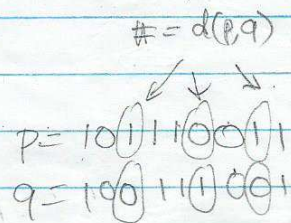 # = d(p,q)
p = 101110011
q = 100111001